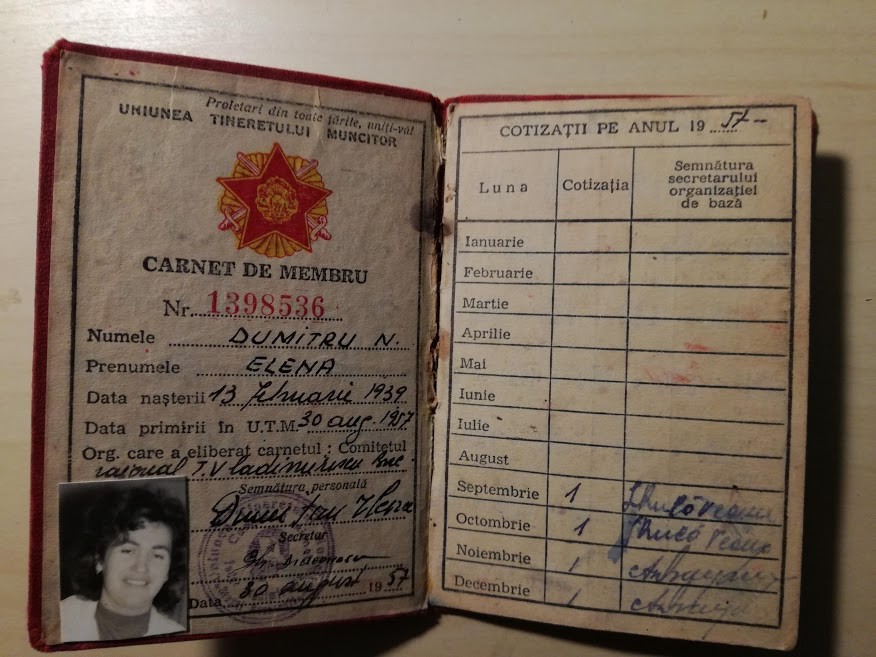 Proletari din toate țările, uniți-vă!
UNIUNEA TINERETULUI MUNCITOR
CARNET DE MEMBRU
Nr. 1398536
Numele DUMITRU N.
Prenumele ELENA
Data nașterii 13 februarie 1939
Data primirii în U.T.M. 30 aug. 1957
Org. care a eliberat carnetul : Comitetul
raional T. Vladimirescu Buc.
Semnătura personală
Dumitru Elena
Secretar
Data 30 august 1957
COTIZAȚII PE ANUL 1957
Luna Cotizația Semnătura
secretarului
organizației
de bază
Ianuarie
Februarie
Martie
Aprilie
Mai
Iunie
Iulie
August
Septembrie 1
Octombrie 1
Noiembrie 1
Decembrie 1